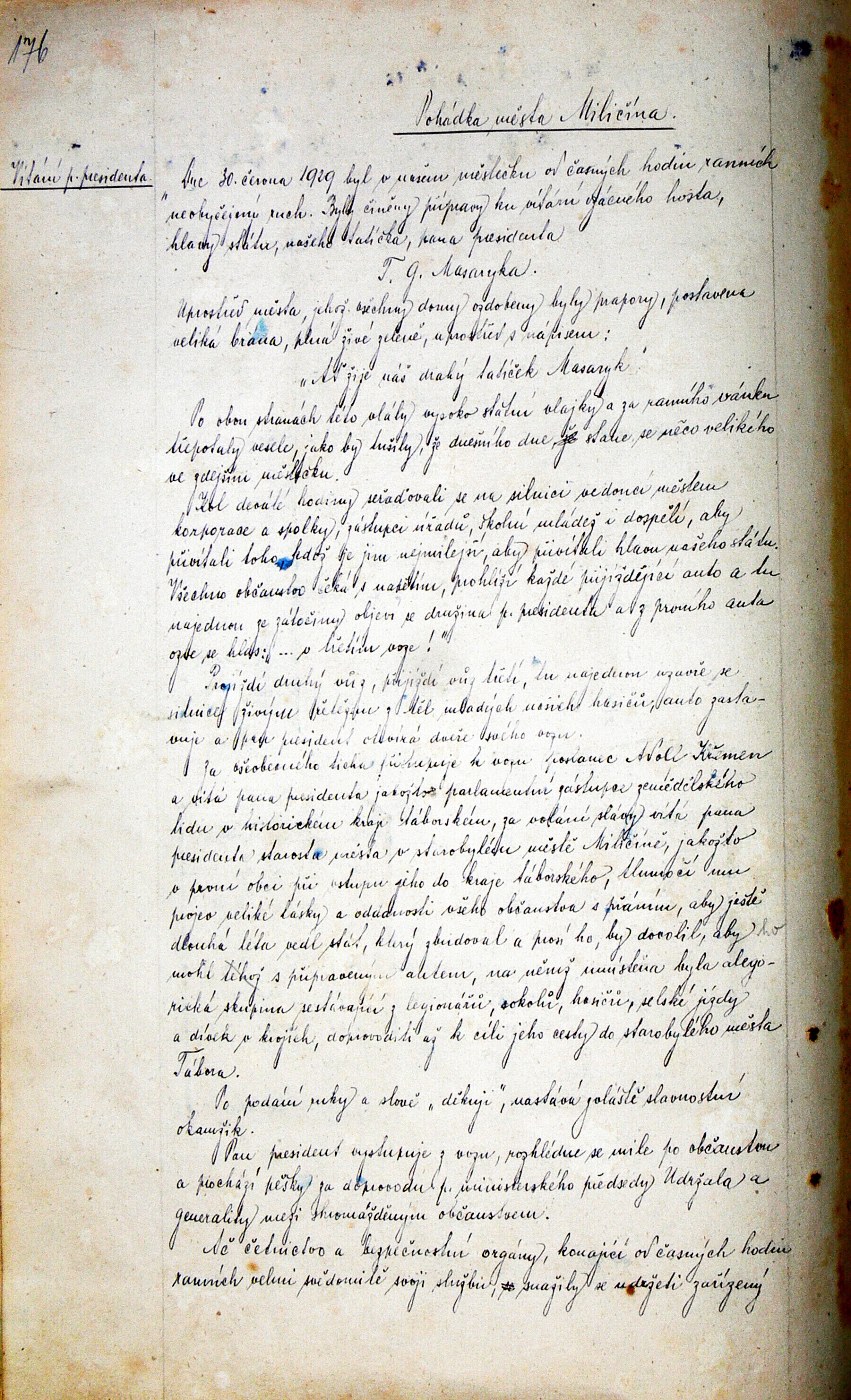 176
Pohádka města Miličína.
Vítání p. presidenta.
„Dne 30. června 1929 byl v našem městečku od časných hodin ranních
neobyčejný ruch. Byly činěny přípravy ku vítání vzácného hosta,
hlavy státu, našeho tatíčka, pana presidenta
T. G. Masaryka.
Uprostřed města, jehož všechny domy ozdobeny byly prapory, postavena
veliká brána, plná živé zeleně, uprostřed s nápisem:
„Ať žije náš drahý tatíček Masaryk!"
Po obou stranách této vlály vysoko státní vlajky a za ranního vánku
třepotaly vesele, jako by tušily, že dnešního dne stane se něco velikého
ve zdejším městečku.
Kol deváté hodiny seřaďovali se na silnici vedoucí městem
korporace a spolky, zástupci úřadů, školní mládež i dospělí, aby
přivítali toho, kdož je jim nejmilejší, aby přivítali hlavu našeho státu.
Všechno občanstvo čeká s napětím, prohlíží každé přijíždějící auto a tu
najednou ze zátočiny objeví se družina p. presidenta a z prvního auta
ozve se hlas: „... v třetím voze!"
Projíždí druhý vůz, přijíždí vůz třetí, tu najednou uzavře se
silnice živým řetězem z těl mladých našich hasičů, auto zasta-
vuje a pan president otevírá dveře svého vozu.
Za všeobecného ticha přistupuje k vozu poslanec Adolf Křemen
a vítá pana presidenta jakožto parlamentní zástupce zemědělského
lidu v historickém kraji táborském, za volání slávy vítá pana
presidenta starosta města v starobylém městě Miličíně, jakožto
v první obci při vstupu jeho do kraje táborského, tlumočí mu
projev veliké lásky a oddanosti všeho občanstva s přáním, aby ještě
dlouhá léta vedl stát, který zbudoval a prosí ho, by dovolil, aby ho
mohl téhož s připraveným autem, na němž umístěna byla alego-
rická skupina sestávající z legionářů, sokolů, hasičů, selské jízdy
a dívek v krojích, doprovoditi až k cíli jeho cesty do starobylého města
Tábora.
Po podání ruky a slově „děkuji", nastává zvláště slavnostní
okamžik.
Pan president vystupuje z vozu, rozhlédne se mile po občanstvu
a prochází pěšky za doprovodu p. ministerského předsedy Udržala a
generality mezi shromážděným občanstvem.
Ač četnictvo a bezpečnostní orgány, konající od časných hodin
ranních velmi svědomitě svoji službu, snažily se udržeti zařízený